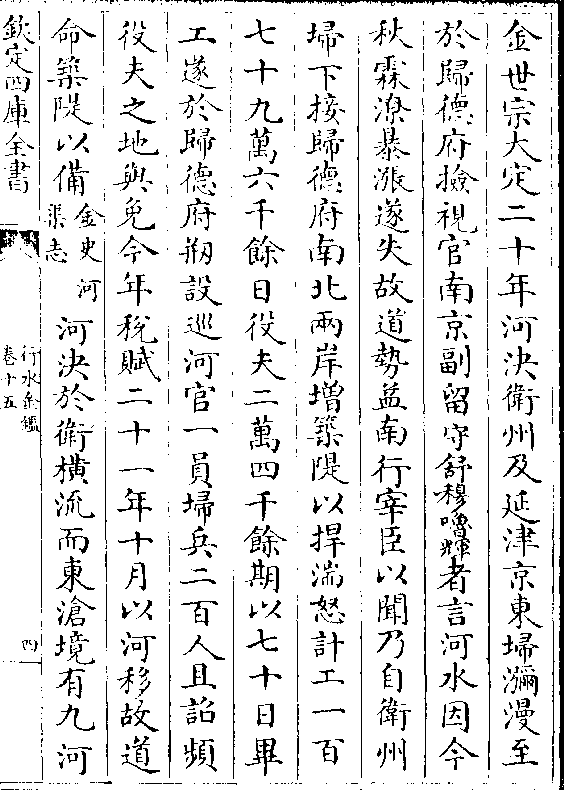 金世宗大定二十年河決衛州及延津京東埽瀰漫至
於歸德府撿視官南京副留守舒穆嚕輝者言河水因今
秋霖潦暴漲遂失故道勢益南行宰臣以聞乃自衛州
埽下接歸德府南北兩岸增築隄以捍湍怒計工一百
七十九萬六千餘日役夫二萬四千餘期以七十日畢
工遂於歸德府剏設巡河官一員埽兵二百人且詔頻
役夫之地與免今年稅賦二十一年十月以河移故道
命築隄以備金史河渠志河決於衛横流而東滄境有九河
欽定四庫全書
行水金鑑
卷十五
四